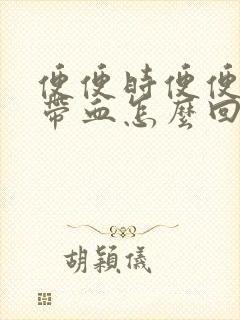 便便時便便
帶血怎麼回
胡穎儀